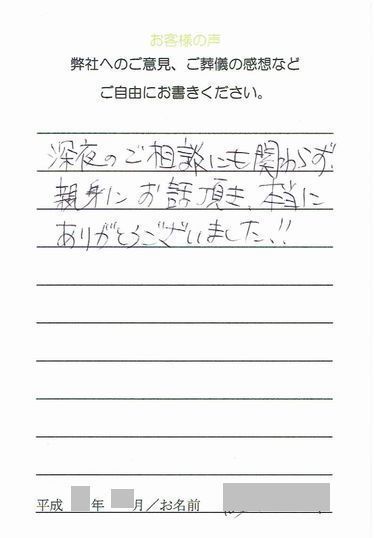 お客様の声
弊社へのご意見、ご葬儀の感想など
ご自由にお書きください。
深夜のご相談にも関わらず
親身にお話頂き、本当に
ありがとうございました!!
平成 年 月/お名前